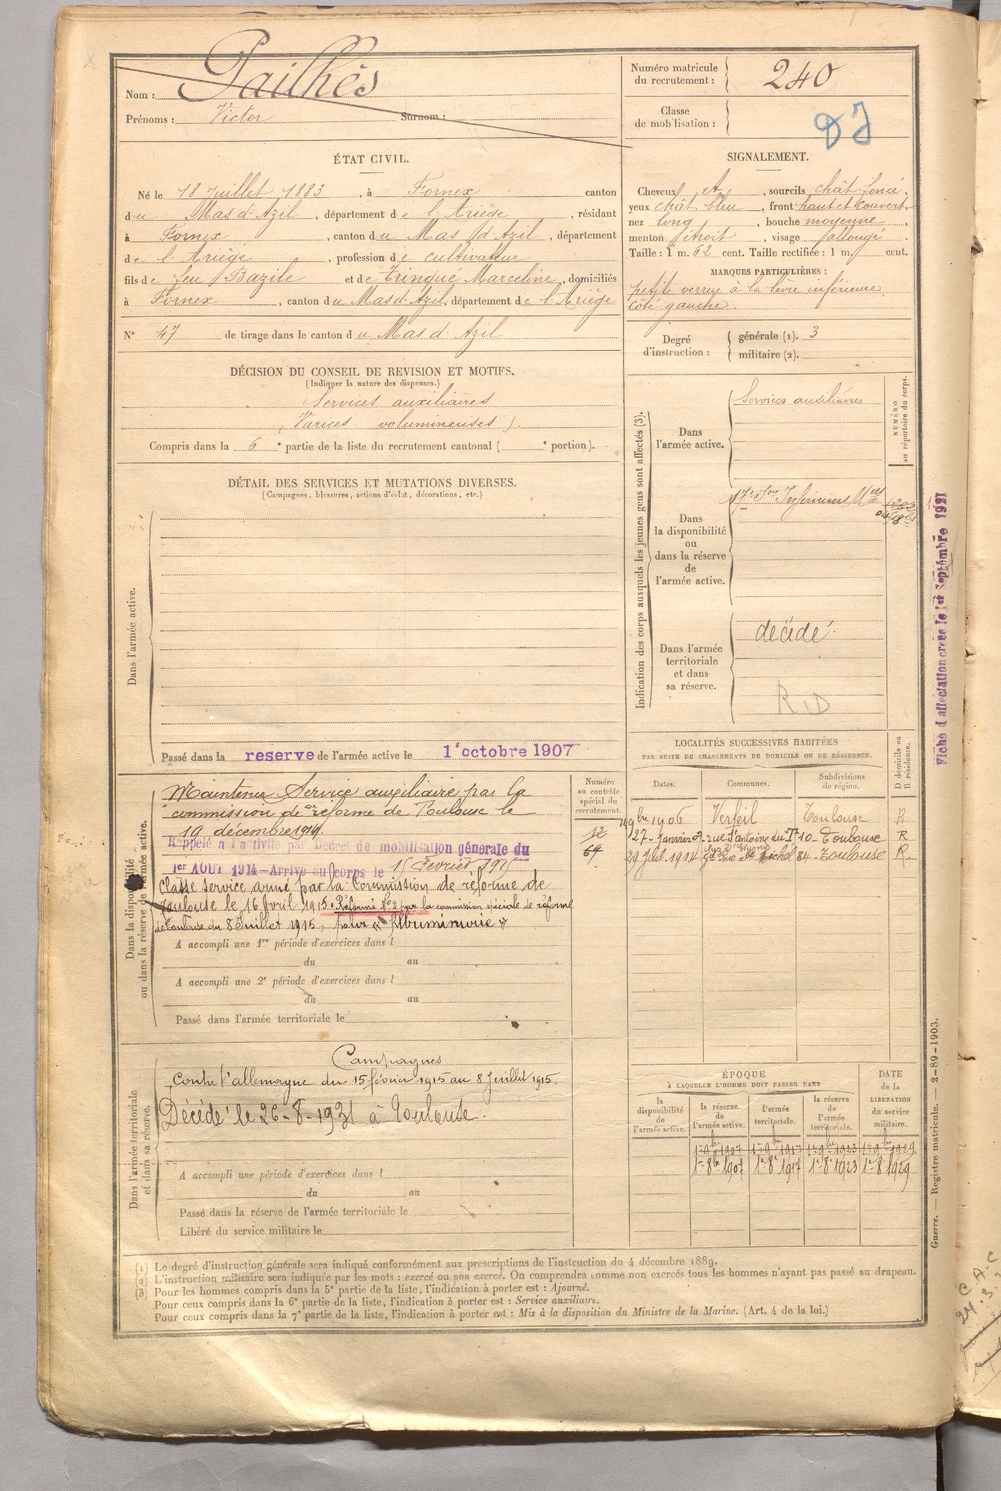 Nom : Pailhès
Prénoms : Victor Surnom :
Numéro matricule du recrutement : 240
Classe de mobilisation :
ÉTAT CIVIL.
Né le 18 Juillet 1883, à Fornex canton
du Mas d'Azil, département de l'Ariège, résidant
à Fornex, canton du Mas d'Azil, département
de l'Ariège, profession de cultivateur
fils de feu Bazile et de Trinqué Marceline, domiciliés
à Fornex, canton du Mas d'Azil, département de l'Ariège
N° 47 de tirage dans le canton du Mas d'Azil
SIGNALEMENT.
Cheveux , sourcils chât. foncé,
yeux chât. bleu, front haut et couvert,
nez long, bouche moyenne,
menton étroit, visage allongé.
Taille : 1 m. 62 cent. Taille rectifiée : 1 m. cent.
MARQUES PARTICULIÈRES :
petite verrue à la lèvre inférieure
côté gauche.
Degré d'instruction : générale (1). 3
militaire (2).
DÉCISION DU CONSEIL DE REVISION ET MOTIFS.
(Indiquer la nature des dispenses.)
Services auxiliaires
(Varices volumineuses).
Compris dans la 6e partie de la liste du recrutement cantonal ( e portion).
DÉTAIL DES SERVICES ET MUTATIONS DIVERSES.
(Campagnes, blessures, actions d'éclat, décorations, etc.)
Dans l'armée active.
Passé dans la reserve de l'armée active le 1er octobre 1907
Indication des corps auxquels les jeunes gens sont affectés (3).
NUMÉRO au répertoire du corps.
Dans l'armée active.
Services auxiliaires
Dans la disponibilité ou dans la réserve de l'armée active.
17e Son Infirmiers Mres
Dans l'armée territoriale et dans sa réserve.
décédé.
R.D
Fiche d'affectation créée le 1er Septembre 1921
Dans la disponibilité ou dans la réserve de l'armée active.
Maintenu Service auxiliaire par la
commission de réforme de Toulouse le
19 décembre 1914.
Rappelé à l'activité par Décret de mobilisation générale du
1er AOUT 1914 — Arrivé au corps le 15 février 1915
Classé service armé par la Commission de réforme de
Toulouse le 16 avril 1915. Réformé N°2 par la commission spéciale de réforme
de Toulouse du 8 Juillet 1915, pour "Albuminurie"
A accompli une 1re période d'exercices dans l
du au
A accompli une 2e période d'exercices dans l
du au
Passé dans l'armée territoriale le
Numéro au contrôle spécial du recrutement.
64
LOCALITÉS SUCCESSIVES HABITÉES
PAR SUITE DE CHANGEMENTS DE DOMICILE OU DE RÉSIDENCE.
Dates. Communes. Subdivisions de région. D domicile ou R résidence.
9bre 1906 Verfeil Toulouse R
27 Janvier rue St Antoine du T 10 Toulouse R
29 Juil. 1914 Gde Rue St Michel 84 Toulouse R.
Dans l'armée territoriale et dans sa réserve.
Campagnes
Contre l'allemagne du 15 février 1915 au 8 Juillet 1915.
Décédé le 26-8-1931 à Toulouse.
A accompli une période d'exercices dans l
du au
Passé dans la réserve de l'armée territoriale le
Libéré du service militaire le
ÉPOQUE
À LAQUELLE L'HOMME DOIT PASSER DANS
la disponibilité de l'armée active.
la réserve de l'armée active.
l'armée territoriale.
la réserve de l'armée territoriale.
DATE de la LIBÉRATION du service militaire.
1r 9bre 1907 1r 9bre 1917 1r 9bre 1923 1r 9bre 1929
1r 8bre 1907 1r 8e 1917 1r 8e 1923 1r 8 1929
Guerre. — Registre matricule. — 2-89-1903.
(1) Le degré d'instruction générale sera indiqué conformément aux prescriptions de l'instruction du 4 décembre 1889.
(2) L'instruction militaire sera indiquée par les mots : exercé ou non exercé. On comprendra comme non exercés tous les hommes n'ayant pas passé au drapeau.
(3) Pour les hommes compris dans la 5e partie de la liste, l'indication à porter est : Ajourné.
Pour ceux compris dans la 6e partie de la liste, l'indication à porter est : Service auxiliaire.
Pour ceux compris dans la 7e partie de la liste, l'indication à porter est : Mis à la disposition du Ministre de la Marine. (Art. 4 de la loi.)